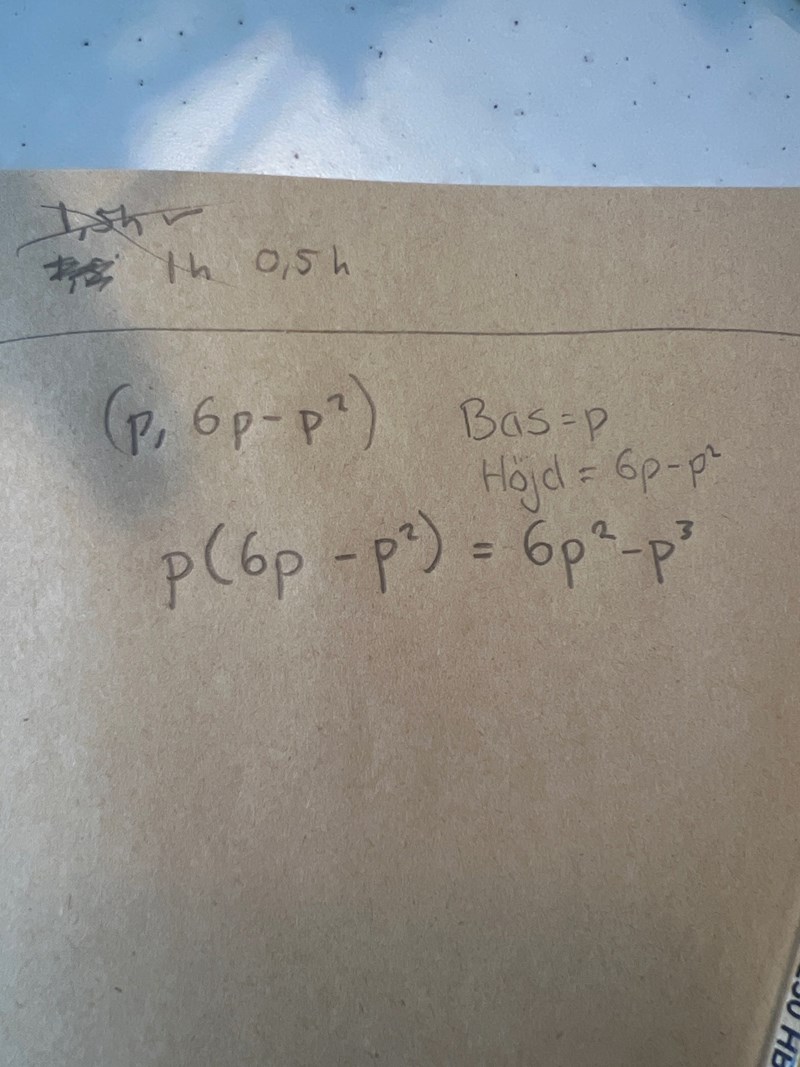 1,5h ✓
1h 0,5h
(p, 6p-p²) Bas=p
Höjd = 6p-p²
p(6p-p²) = 6p²-p³